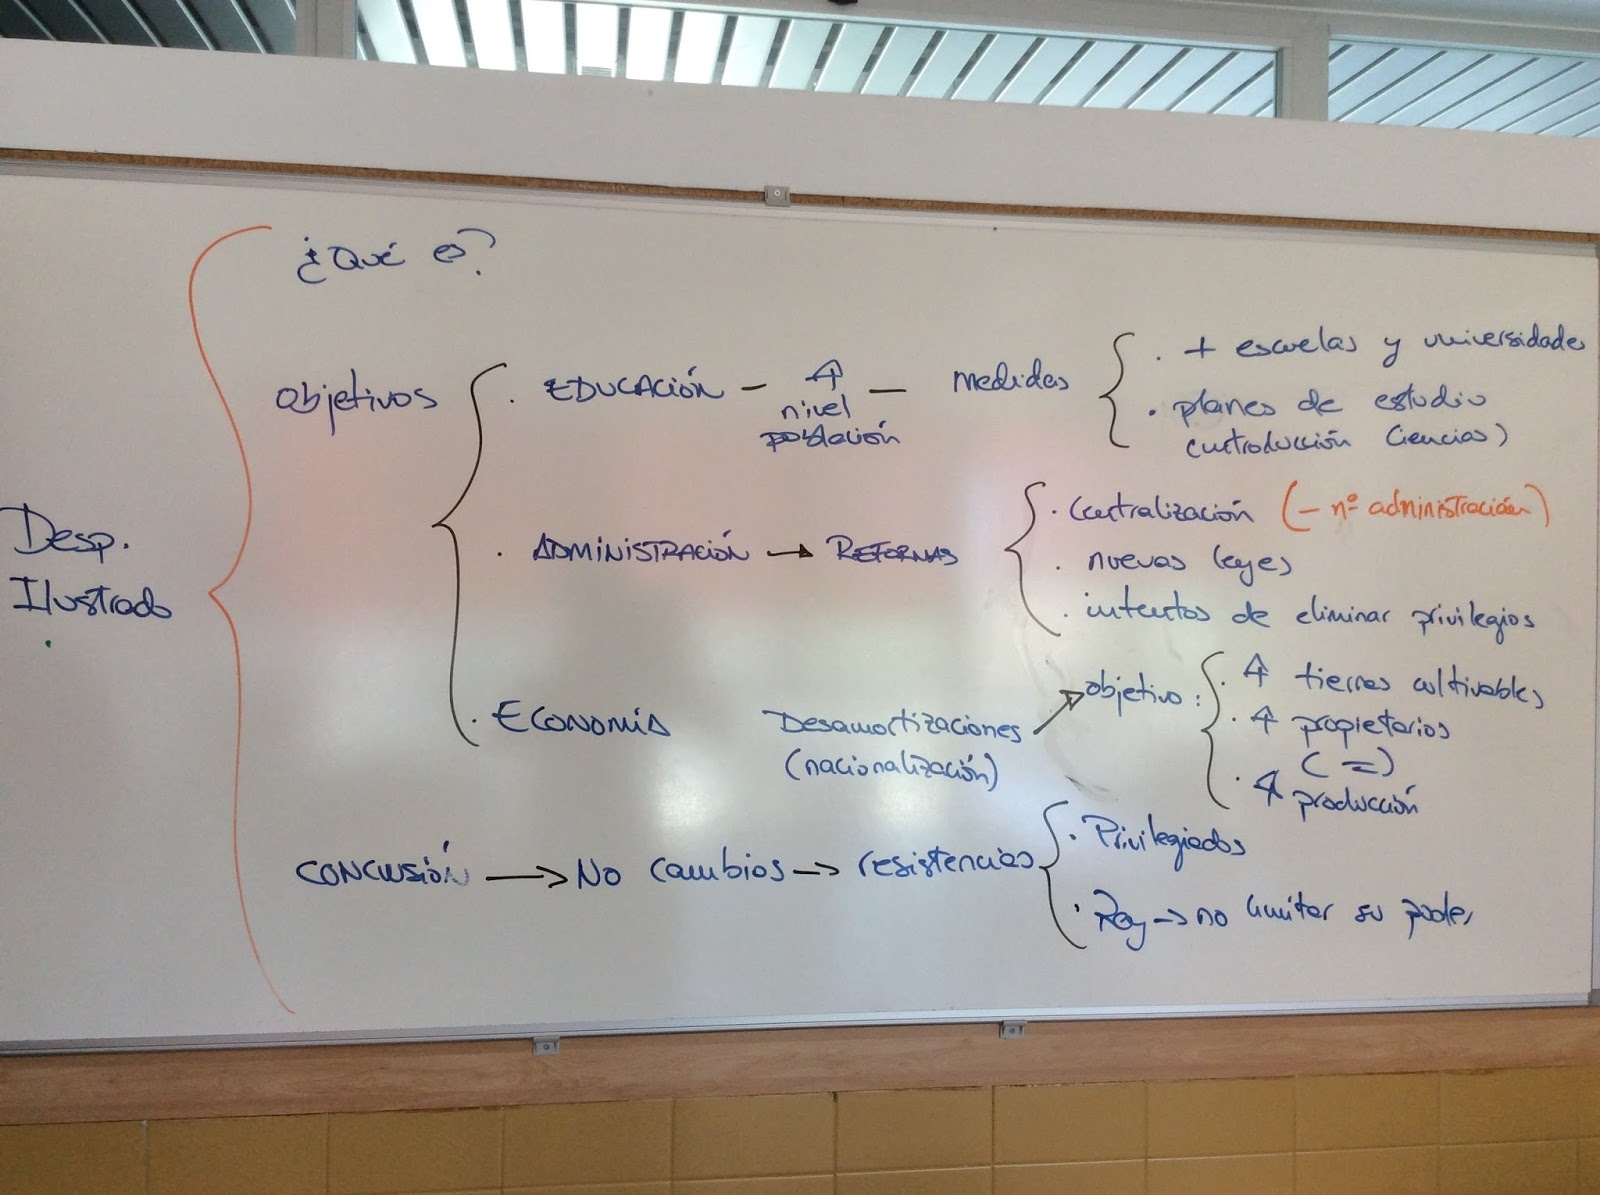 Desp.
Ilustrado
¿Qué es?
Objetivos
. EDUCACIÓN — ↑ — medidas
nivel
población
. + escuelas y universidades
. planes de estudio
(introducción Ciencias)
. ADMINISTRACIÓN → REFORMAS
. Centralización (- nº administración)
. nuevas leyes
. intentos de eliminar privilegios
. ECONOMÍA
Desamortizaciones
(nacionalización)
objetivo:
. ↑ tierras cultivables
. ↑ propietarios
(=)
. ↑ producción
CONCLUSIÓN → No cambios → resistencias
. Privilegiados
. Rey → no limitar su poder